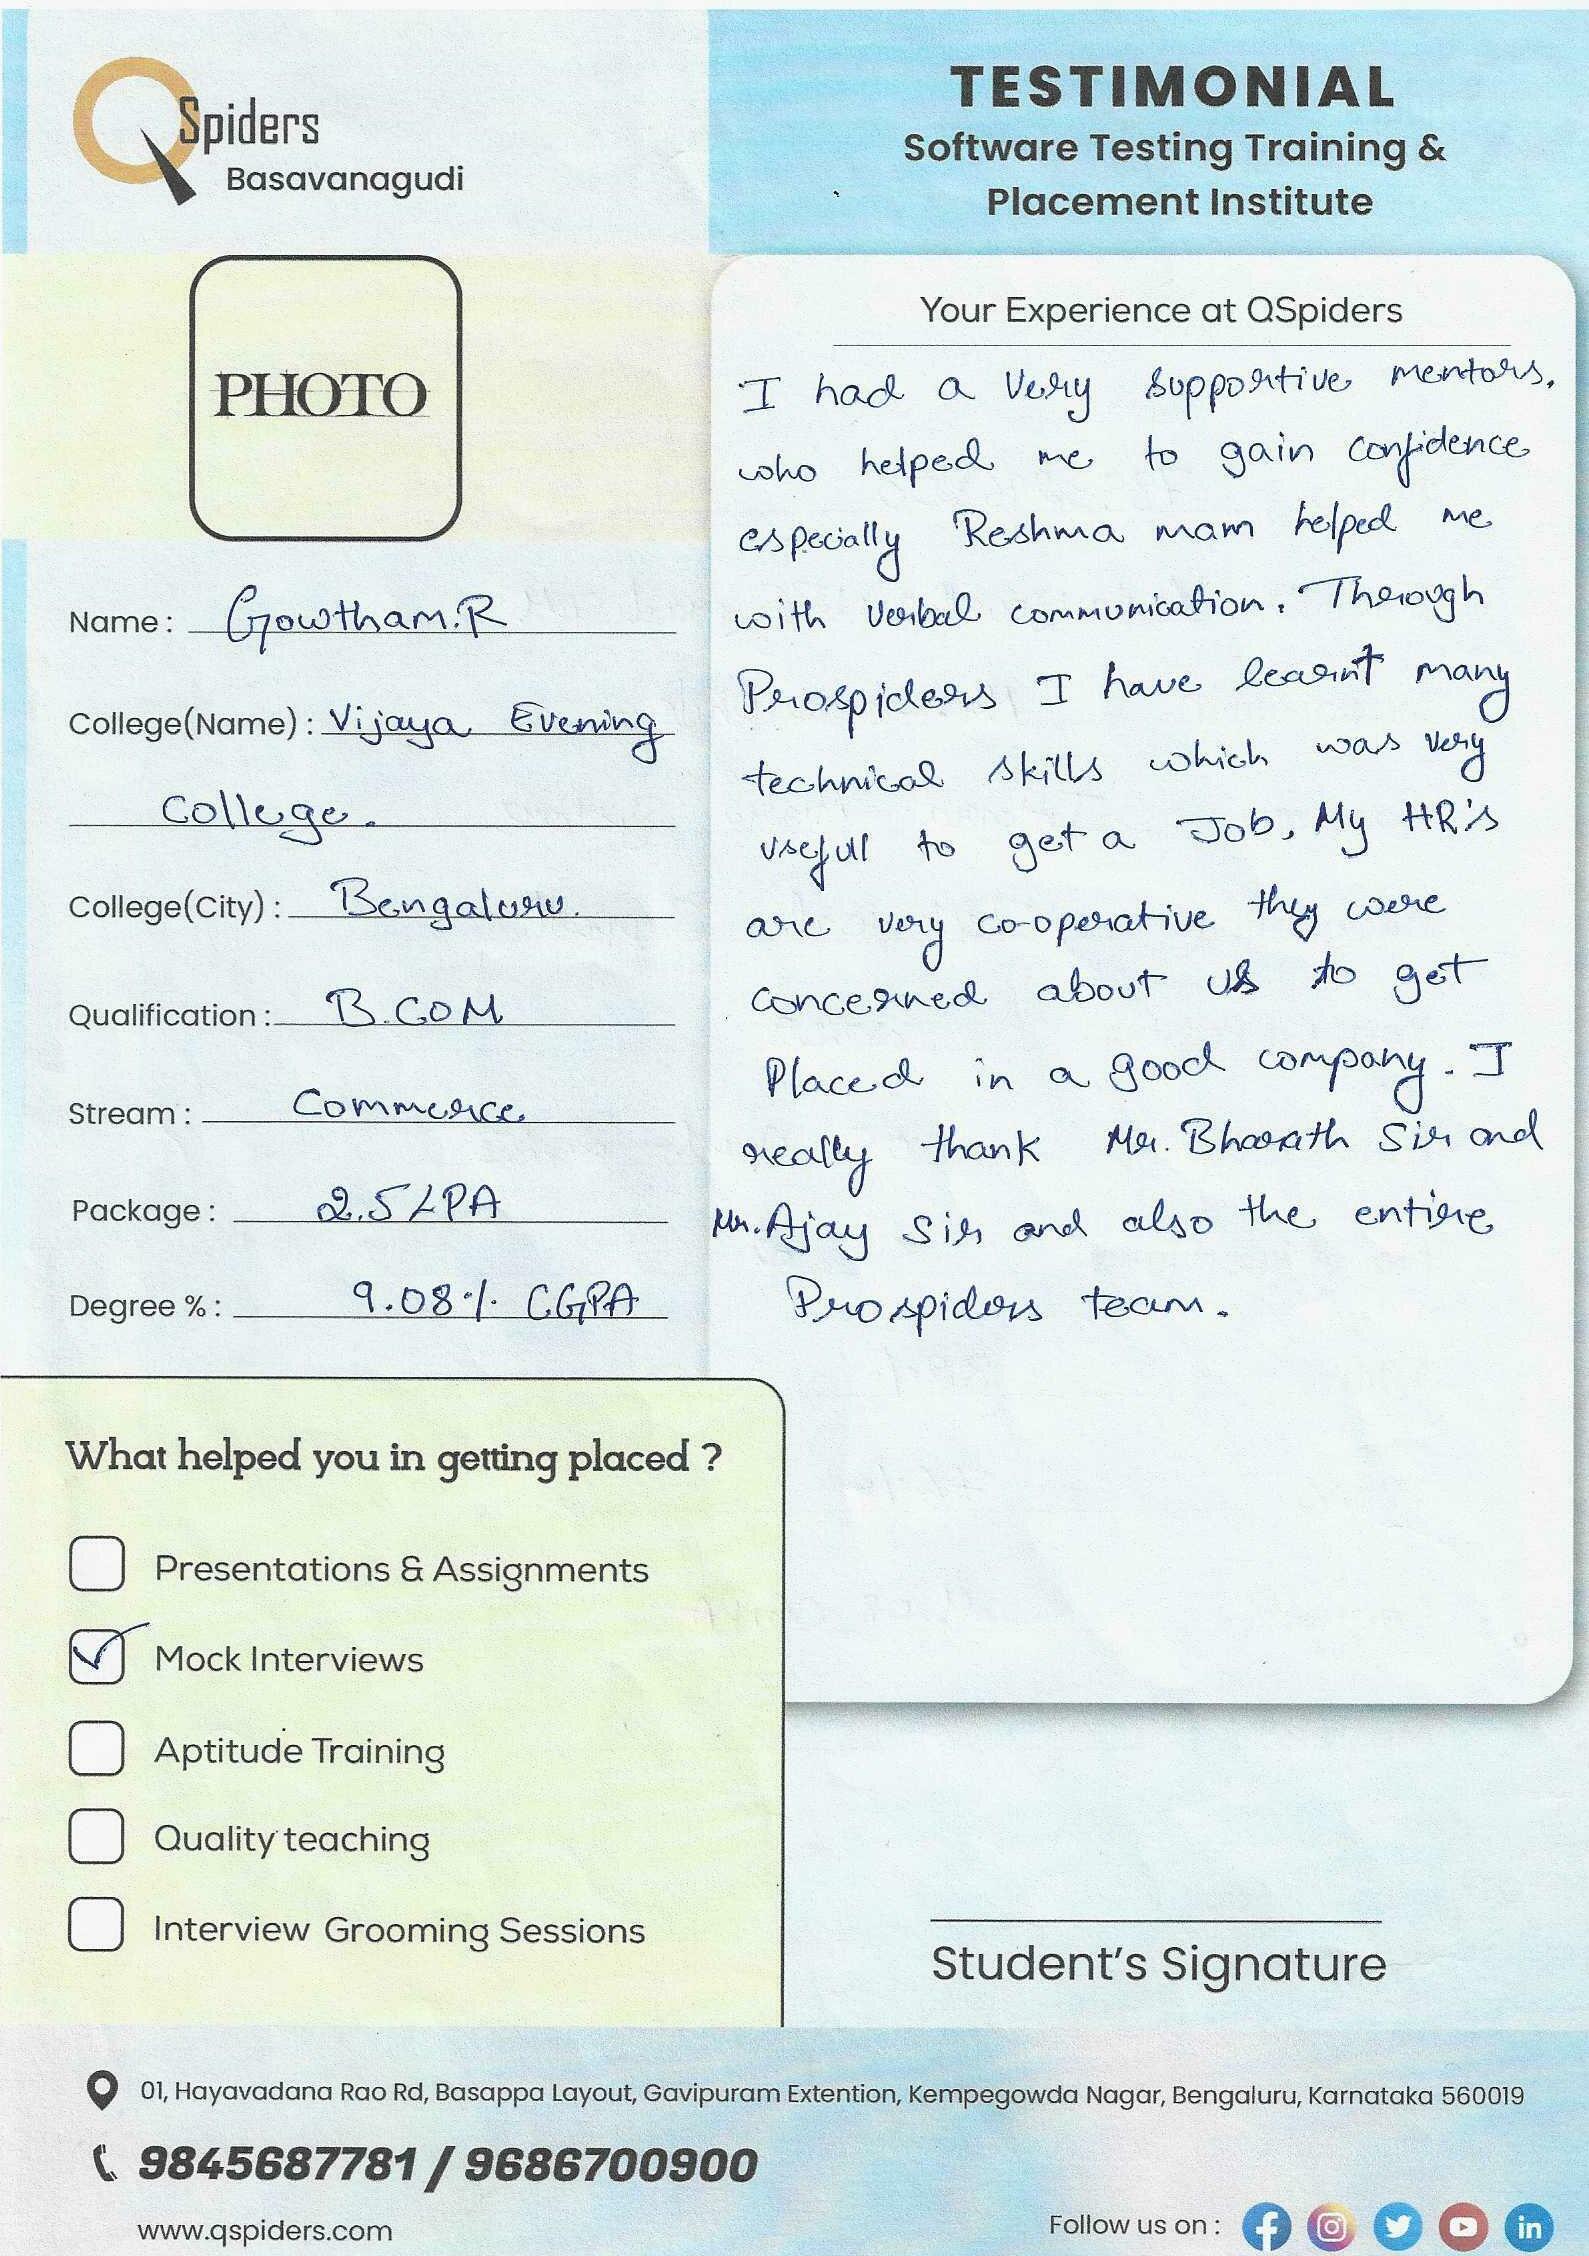 QSpiders
Basavanagudi
TESTIMONIAL
Software Testing Training &
Placement Institute
PHOTO
Name : Gowtham.R
College(Name) : Vijaya Evening
College.
College(City) : Bengaluru.
Qualification : B.COM
Stream : Commerce
Package : 2.5 LPA
Degree % : 9.08% CGPA
Your Experience at QSpiders
I had a Very supportive mentors.
who helped me to gain confidence
especially Reshma mam helped me
with Verbal communication. Through
Prospiders I have learnt many
technical skills which was very
useful to get a Job. My HR's
are very co-operative they were
concerned about us to get
Placed in a good company. I
really thank Mr. Bharath Sir and
Mr. Ajay Sir and also the entire
Prospiders team.
What helped you in getting placed ?
Presentations & Assignments
Mock Interviews
Aptitude Training
Quality teaching
Interview Grooming Sessions
Student's Signature
01, Hayavadana Rao Rd, Basappa Layout, Gavipuram Extention, Kempegowda Nagar, Bengaluru, Karnataka 560019
9845687781 / 9686700900
www.qspiders.com
Follow us on :